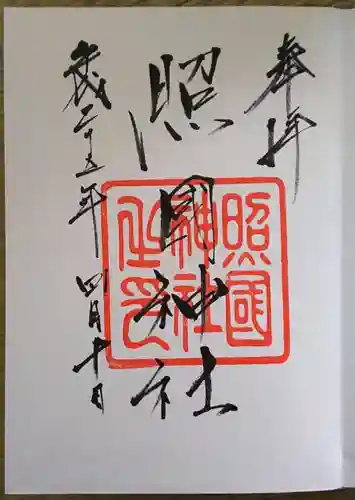 奉拝
照國神社
平成二十五年 四月十日
照國
神社
之印